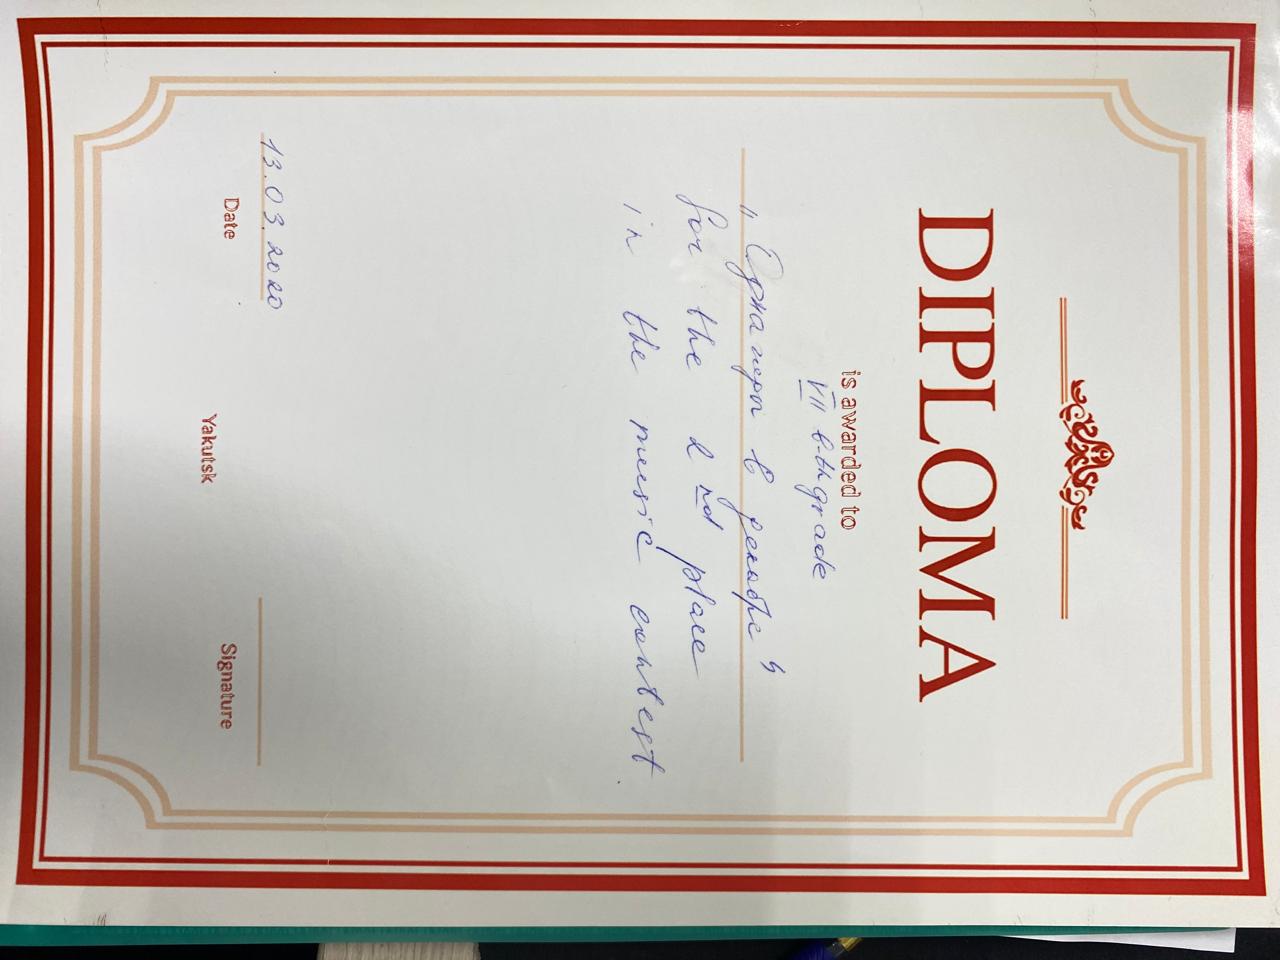 DIPLOMA
is awarded to
VII в-th grade
„Однажды в декабре“
for the 2nd place
in the music contest.
13.03.2020
Date
Signature
Yakutsk